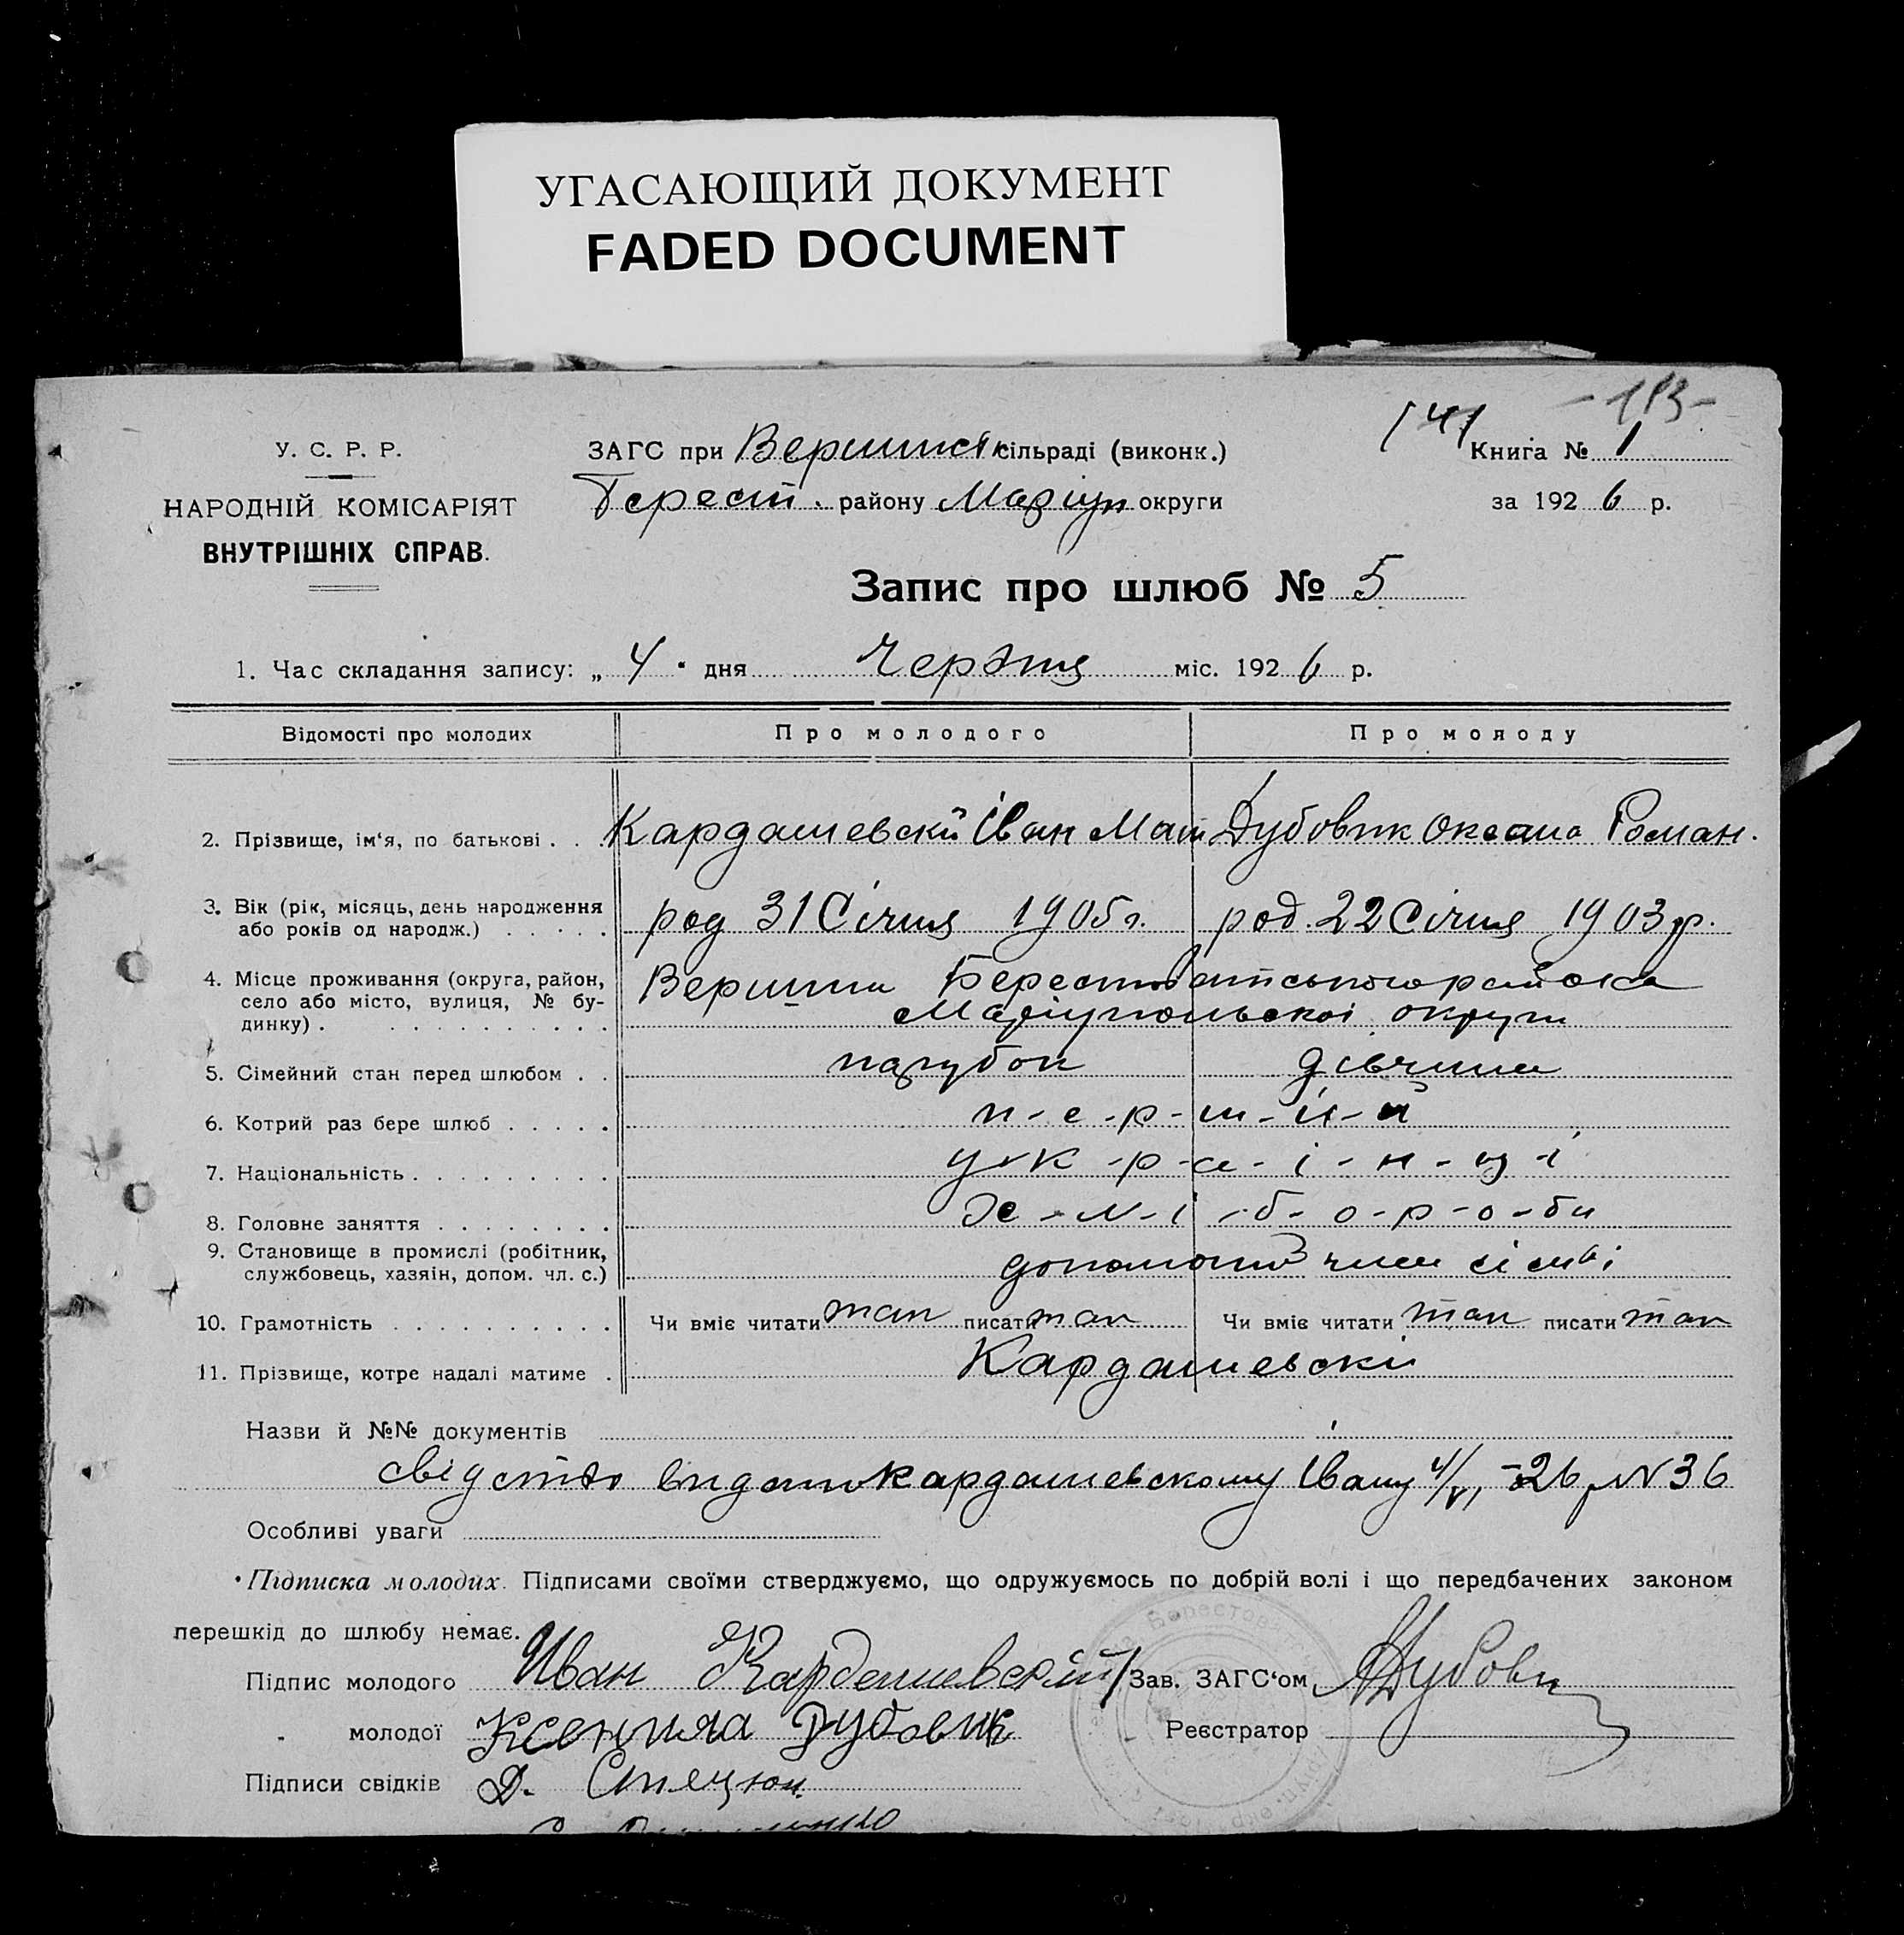 УГАСАЮЩИЙ ДОКУМЕНТ
FADED DOCUMENT
-113-
141
У. С. Р. Р.
НАРОДНІЙ КОМІСАРІЯТ
ВНУТРІШНІХ СПРАВ.
ЗАГС при Вершинськ сільраді (виконк.)
Берест. району Маріуп округи
Книга № 1
за 1926 р.
Запис про шлюб № 5
1. Час складання запису: „4" дня Червня міс. 1926 р.
Відомості про молодих Про молодого Про молоду
2. Прізвище, ім'я, по батькові . . . Кардашевскй Іван Мат Дубовик Оксана Роман.
3. Вік (рік, місяць, день народження
або років од народж.) . . . . . род 31 Січня 1905 г. род. 22 Січня 1903 р.
4. Місце проживання (округа, район,
село або місто, вулиця, № бу-
динку) . . . . . . . . . .
Вершина Берестоватського района
Маріупольскоі округи
5. Сімейний стан перед шлюбом . . парубок дівчина
6. Котрий раз бере шлюб . . . . . п-е-р-ш-и-й
7. Національність . . . . . . . . . у-к-р-а-і-н-ц-і
8. Головне заняття . . . . . . . . х-л-і-б-о-р-о-би
9. Становище в промислі (робітник,
службовець, хазяін, допом. чл. с.) члни сімві
10. Грамотність . . . . . . . . . . Чи вміє читати так писати так Чи вміє читати так писати так
11. Прізвище, котре надалі матиме . Кардашевскі
Назви й №№ документів
свідство видано Кардашевскому Івану 4/VI-26 р N 36
Особливі уваги
Підписка молодих. Підписами своїми стверджуємо, що одружуємось по добрій волі і що передбачених законом
перешкід до шлюбу немає.
Підпис молодого Иван Кардашевскій Зав. ЗАГС'ом Дубови
„ молодої Ксенниа Дубовик Реєстратор
Підписи свідків Д.